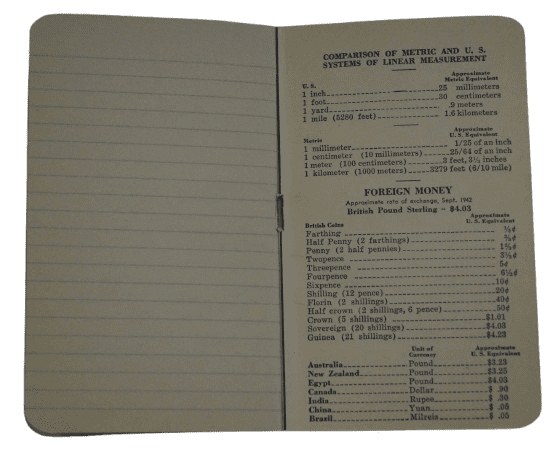 COMPARISON OF METRIC AND U. S.
SYSTEMS OF LINEAR MEASUREMENT
Approximate
U. S. Metric Equivalent
1 inch 25 millimeters
1 foot 30 centimeters
1 yard .9 meters
1 mile (5280 feet) 1.6 kilometers
Approximate
Metric U. S. Equivalent
1 millimeter 1/25 of an inch
1 centimeter (10 millimeters) 25/64 of an inch
1 meter (100 centimeters) 3 feet, 3⅓ inches
1 kilometer (1000 meters) 3279 feet (6/10 mile)
FOREIGN MONEY
Approximate rate of exchange, Sept. 1942
British Pound Sterling = $4.03
Approximate
British Coins U. S. Equivalent
Farthing
Half Penny (2 farthings)
Penny (2 half pennies)
Twopence
Threepence 5¢
Fourpence
Sixpence 10¢
Shilling (12 pence) 20¢
Florin (2 shillings) 40¢
Half crown (2 shillings, 6 pence) 50¢
Crown (5 shillings) $1.01
Sovereign (20 shillings) $4.03
Guinea (21 shillings) $4.23
Unit of Approximate
Currency U. S. Equivalent
Australia Pound $3.23
New Zealand Pound $3.25
Egypt Pound $4.03
Canada Dollar $ .90
India Rupee $ .30
China Yuan $ .05
Brazil Milreis $ .05